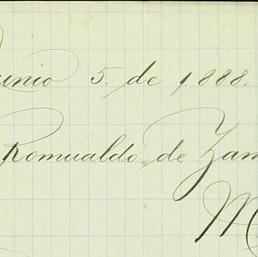 unio 5. de 1888.
Romualdo de Zam
M